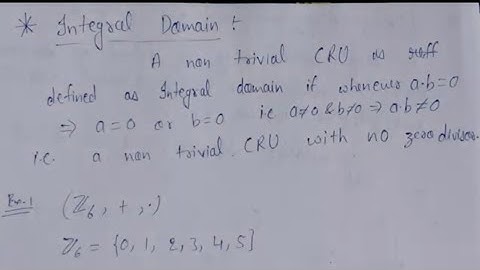 * Integral Domain :
A non trivial CRU is
defined as Integral domain if whenever a·b=0
⇒ a=0 or b=0 i.e a≠0 & b≠0 ⇒ a·b≠0
i.e. a non trivial CRU with no zero divisor.
Ex.1 (ℤ₆, +, ·)
ℤ₆ = {0, 1, 2, 3, 4, 5}